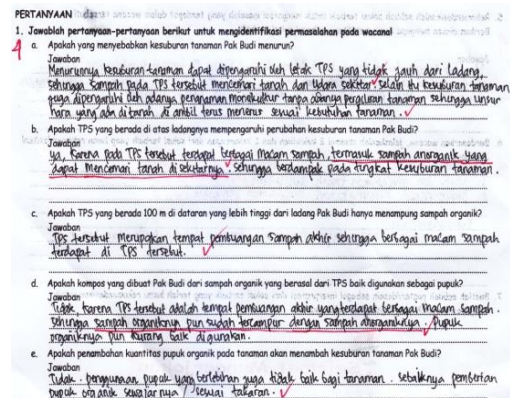 PERTANYAAN
1. Jawablah pertanyaan-pertanyaan berikut untuk mengidentifikasi permasalahan pada wacana!
4
a. Apakah yang menyebabkan kesuburan tanaman Pak Budi menurun?
Jawaban
Menurunnya kesuburan tanaman dapat dipengaruhi oleh letak TPS yang tidak jauh dari ladang,
sehingga sampah pada TPS tersebut mencemari tanah dan udara sekitar. selain itu kesuburan tanaman
juga dipengaruhi oleh adanya penanaman monokultur tanpa adanya pergiliran tanaman sehingga unsur
hara yang ada di tanah di ambil terus menerus sesuai kebutuhan tanaman.
b. Apakah TPS yang berada di atas ladangnya mempengaruhi perubahan kesuburan tanaman Pak Budi?
Jawaban
ya, karena pada TPS tersebut terdapat berbagai macam sampah, termasuk sampah anorganik yang
dapat mencemari tanah di sekitarnya. sehingga berdampak pada tingkat kesuburan tanaman.
c. Apakah TPS yang berada 100 m di dataran yang lebih tinggi dari ladang Pak Budi hanya menampung sampah organik?
Jawaban
TPS tersebut merupakan tempat pembuangan sampah akhir sehingga berbagai macam sampah
terdapat di TPS tersebut.
d. Apakah kompos yang dibuat Pak Budi dari sampah organik yang berasal dari TPS baik digunakan sebagai pupuk?
Jawaban
Tidak, karena TPS tersebut adalah tempat pembuangan akhir yang terdapat berbagai macam sampah.
sehingga sampah organiknya pun sudah tercampur dengan sampah anorganiknya. Pupuk
organiknya pun kurang baik digunakan.
e. Apakah penambahan kuantitas pupuk organik pada tanaman akan menambah kesuburan tanaman Pak Budi?
Jawaban
Tidak. penggunaan pupuk yang berlebihan juga tidak baik bagi tanaman. sebaiknya pemberian
pupuk organik sewajarnya / sesuai takaran.